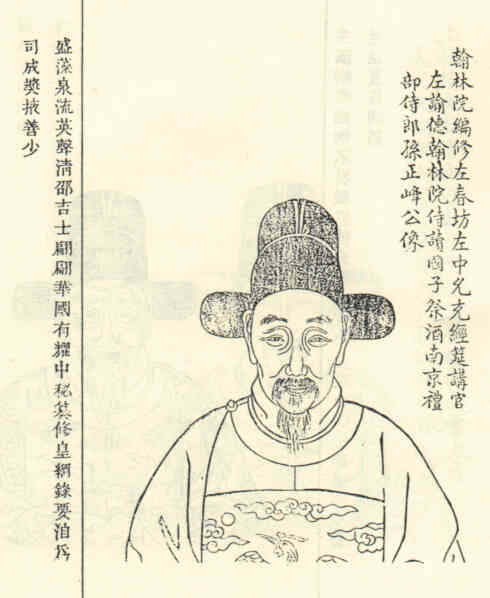 翰林院編修左春坊左中允充經筵講官
左諭德翰林院侍讀國子祭酒南京禮
部侍郎孫正峰公像
盛藻泉流英聲清邵吉士翩翩華國有耀中秘纂修皇綱錄要洎為
司成奬掖善少